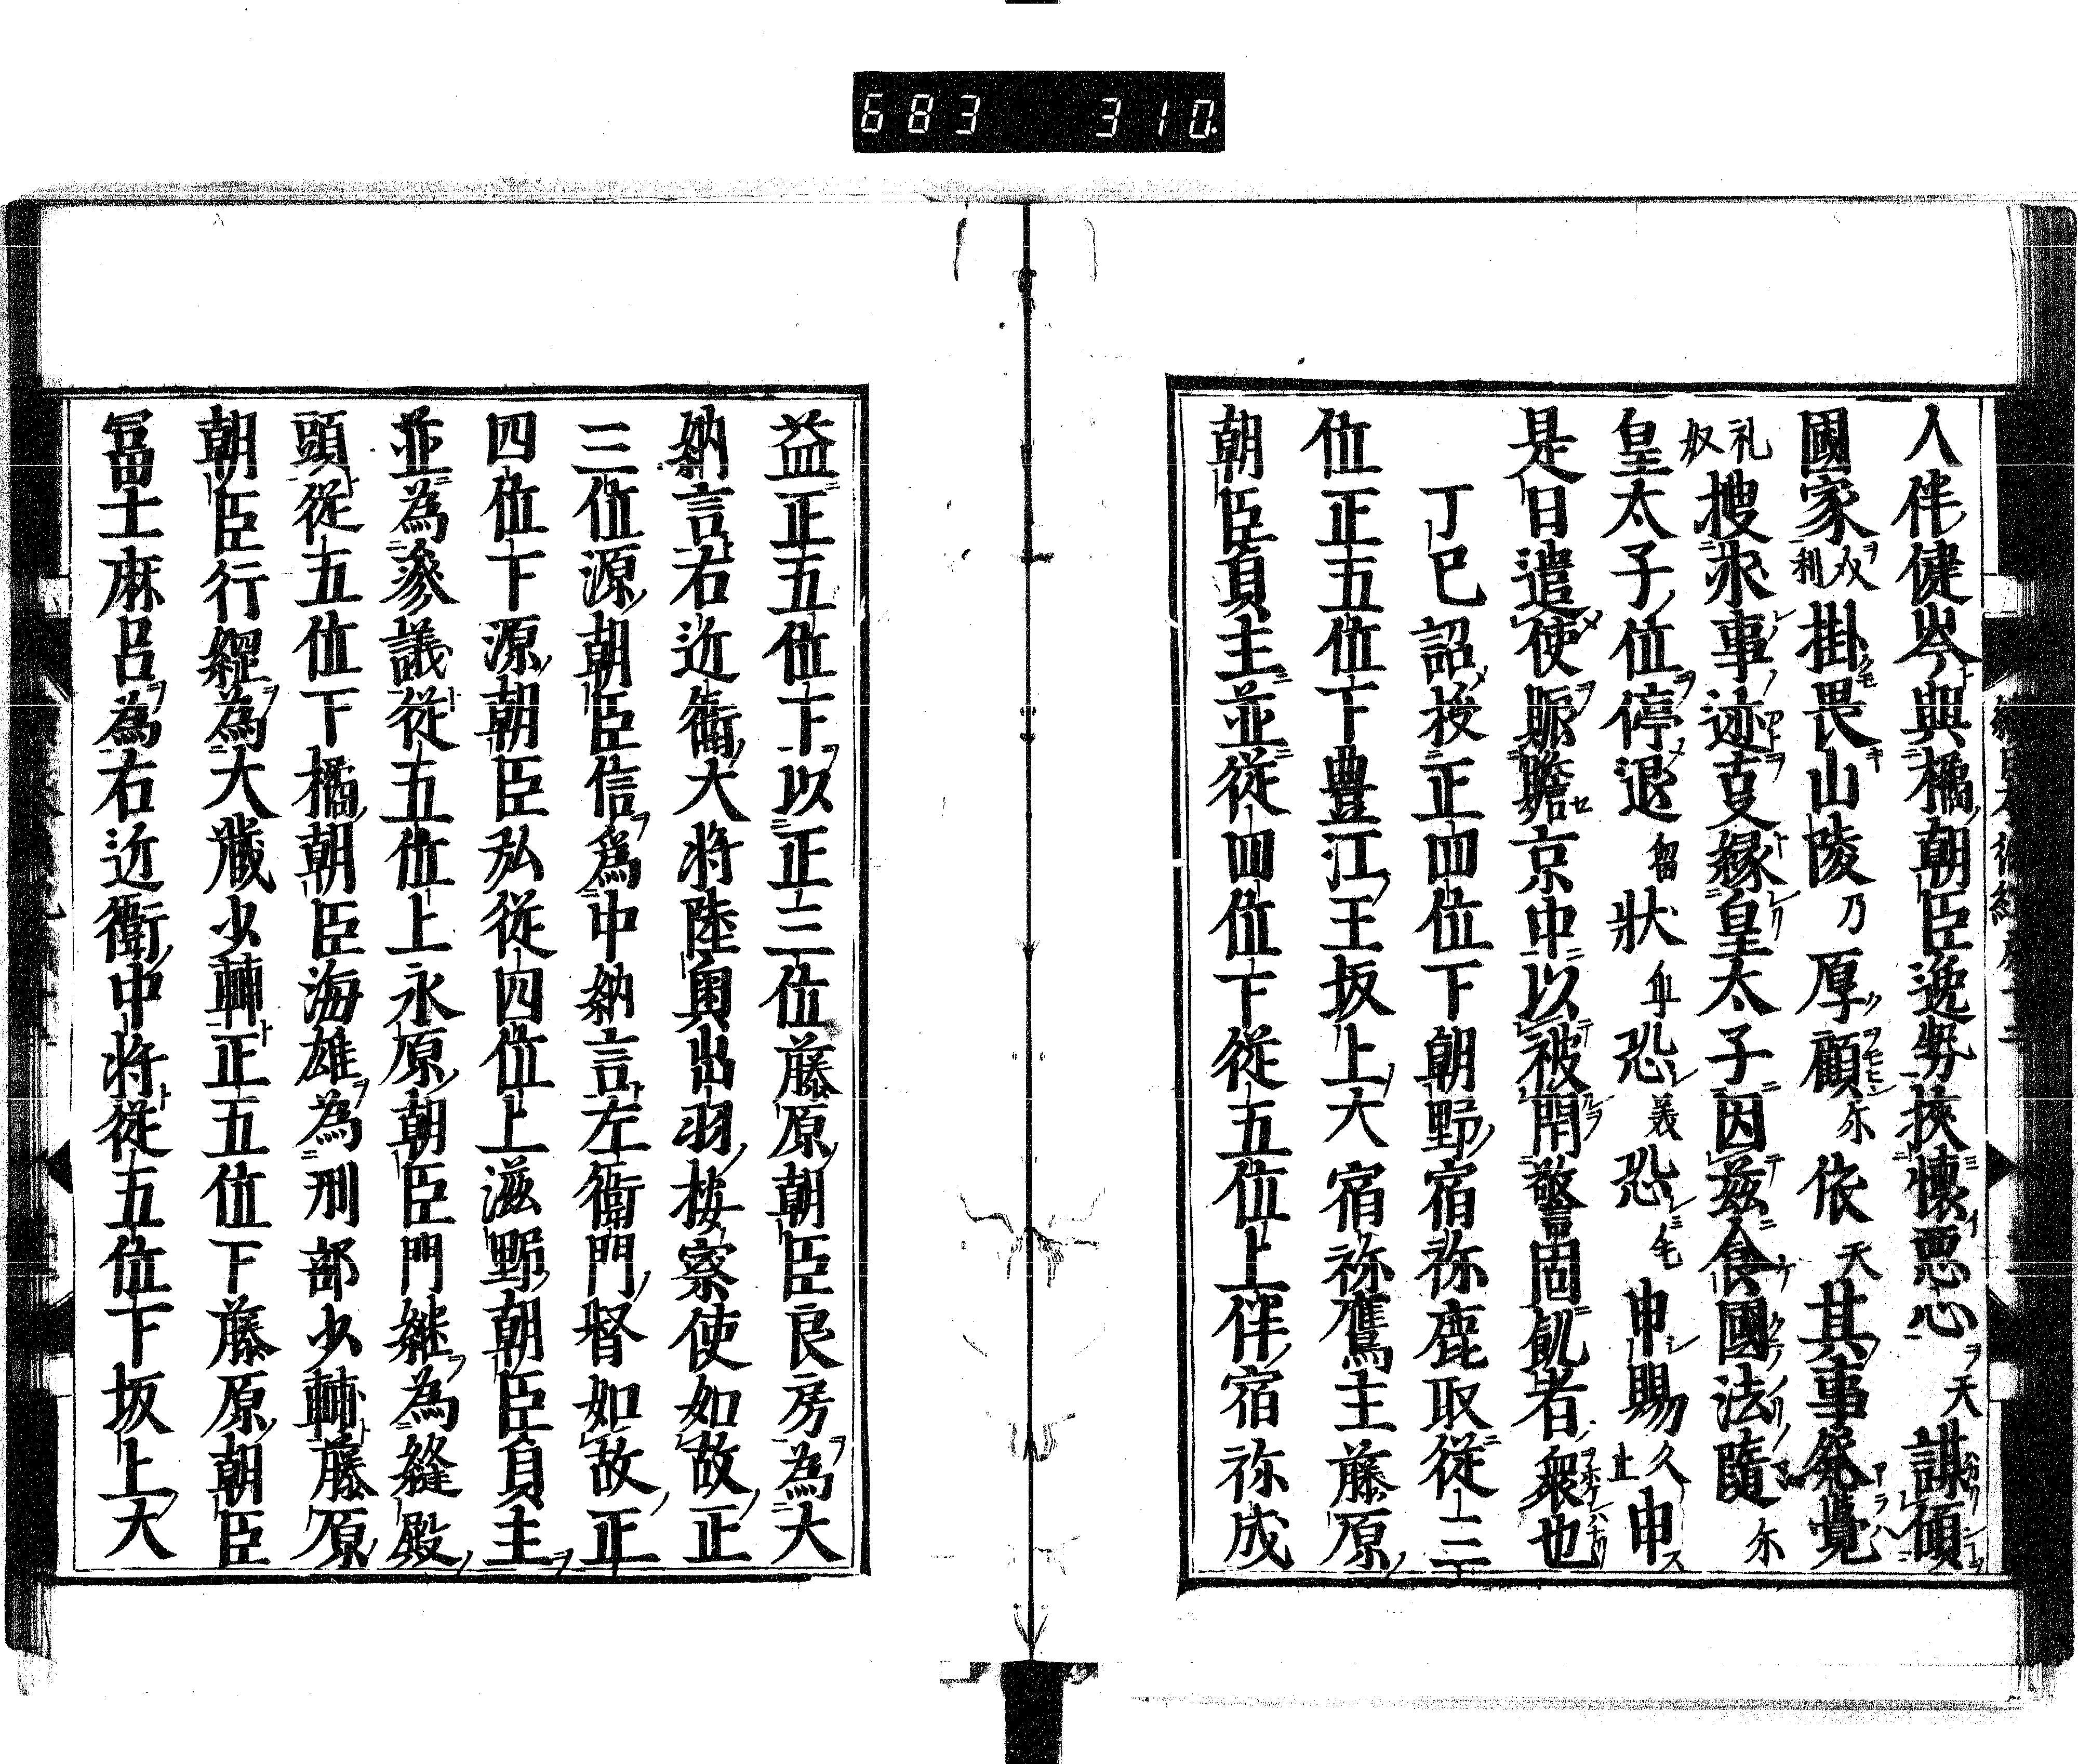 683 310
人伴健岑與橘朝臣逸勢挾懷悪心天謀傾
國家奴利掛畏山陵乃厚顧尓依天其事発覺
礼奴搜求事迹㕝縁皇太子因玆食國法隨尓
皇太子位停退留狀乎恐美恐毛申賜久止申
是日遣使賑贍京中以被閇警固飢者衆也
丁巳詔授正四位下朝野宿祢鹿取從三
位正五位下豊江王坂上大宿祢鷹主藤原
朝臣貟主並從四位下從五位上伴宿祢成
益正五位下以正三位藤原朝臣良房為大
納言右近衛大将陸奥出羽按察使如故正
三位源朝臣信為中納言左衛門督如故正
四位下源朝臣弘從四位上滋野朝臣貟主
並為叅議從五位上永原朝臣門継為縫殿
頭從五位下橘朝臣海雄為刑部少輔藤原
朝臣行縄為大蔵少輔正五位下藤原朝臣
冨士麻呂為右近衛中将從五位下坂上大